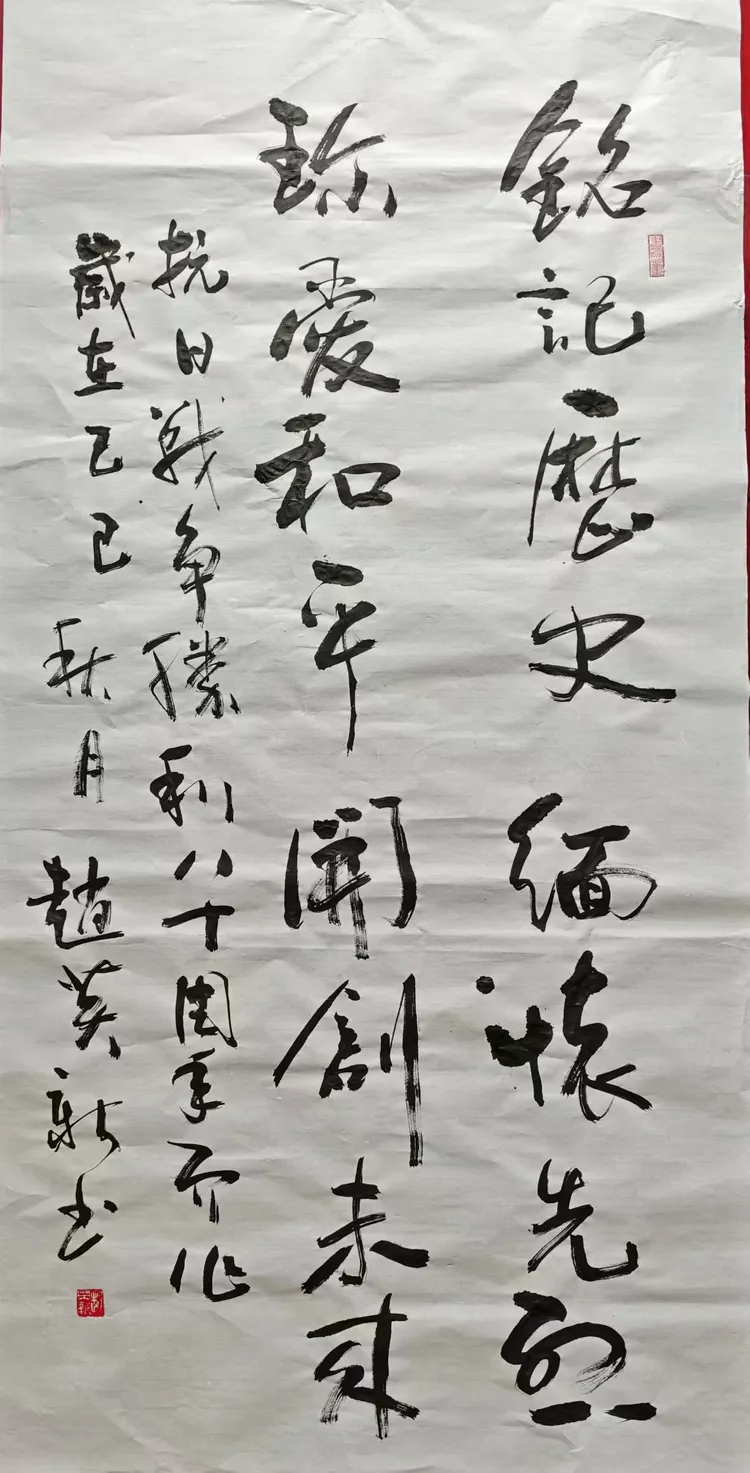 銘記歷史 緬懷先烈
珍愛和平 開創未来
抗日战争勝利八十周年而作
歲在乙巳秋月 趙英新书